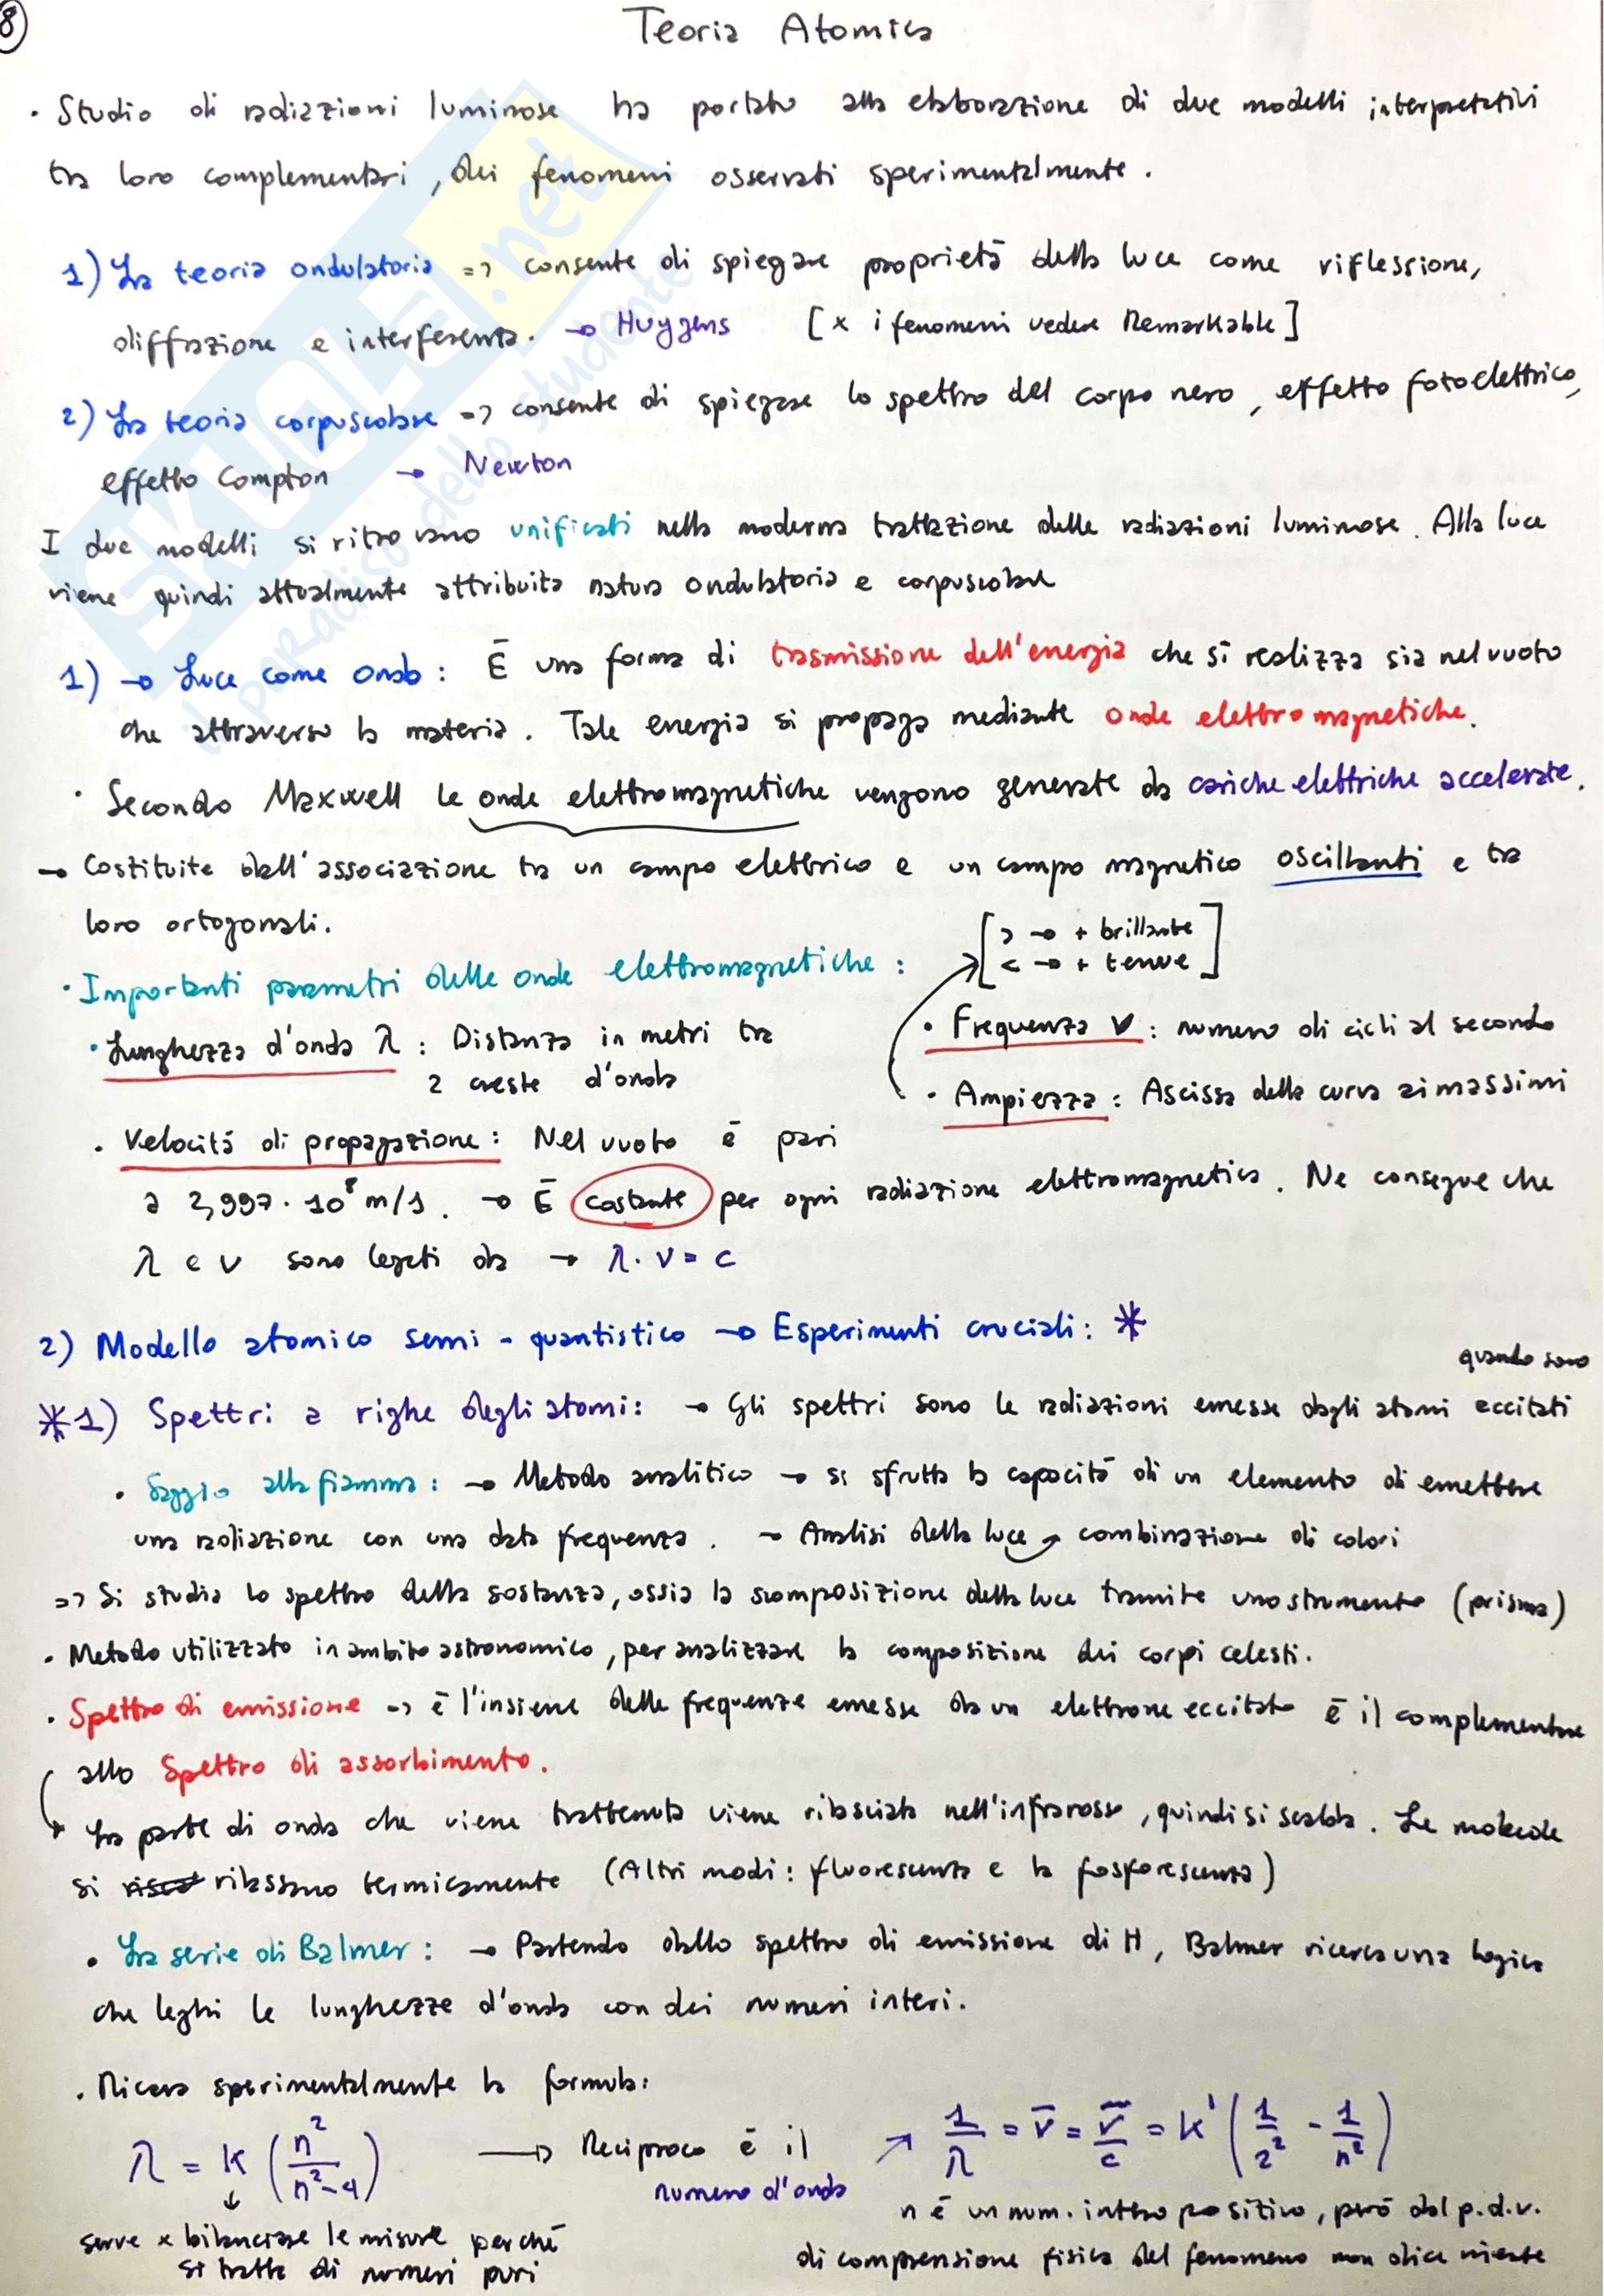 8
Teoria Atomica
· Studio di radiazioni luminose ha portato alla elaborazione di due modelli interpretativi
tra loro complementari, dei fenomeni osservati sperimentalmente.
1) La teoria ondulatoria => consente di spiegare proprietà della luce come riflessione,
diffrazione e interferenza. → Huygens [x i fenomeni vedere Remarkable]
2) La teoria corpuscolare => consente di spiegare lo spettro del corpo nero, effetto fotoelettrico,
effetto Compton → Newton
I due modelli si ritrovano unificati nella moderna trattazione delle radiazioni luminose. Alla luce
viene quindi attualmente attribuita natura ondulatoria e corpuscolare
1) → Luce come onda: È una forma di trasmissione dell'energia che si realizza sia nel vuoto
che attraverso la materia. Tale energia si propaga mediante onde elettromagnetiche.
· Secondo Maxwell le onde elettromagnetiche vengono generate da cariche elettriche accelerate.
→ Costituite dall'associazione tra un campo elettrico e un campo magnetico oscillanti e tra
loro ortogonali.
[> → + brillante
< → + tenue]
· Importanti parametri delle onde elettromagnetiche:
· Lunghezza d'onda λ: Distanza in metri tra
2 creste d'onda
· Frequenza ν: numero di cicli al secondo
· Ampiezza: Ascissa della curva ai massimi
· Velocità di propagazione: Nel vuoto è pari
a 2,997·10⁸ m/1. → È costante per ogni radiazione elettromagnetica. Ne consegue che
λ e ν sono legati da → λ·ν = c
2) Modello atomico semi-quantistico → Esperimenti cruciali: *
*1) Spettri a righe degli atomi: → Gli spettri sono le radiazioni emesse dagli atomi quando sono eccitati
· Saggio alla fiamma: → Metodo analitico → si sfrutta la capacità di un elemento di emettere
una radiazione con una data frequenza. → Analisi della luce → combinazione di colori
=> Si studia lo spettro della sostanza, ossia la scomposizione della luce tramite uno strumento (prisma)
· Metodo utilizzato in ambito astronomico, per analizzare la composizione dei corpi celesti.
· Spettro di emissione => è l'insieme delle frequenze emesse da un elettrone eccitato è il complementare
allo Spettro di assorbimento.
La parte di onda che viene trattenuta viene rilasciata nell'infrarosso, quindi si scalda. Le molecole
si rilassano termicamente (Altri modi: fluorescenza e la fosforescenza)
· La serie di Balmer: → Partendo dallo spettro di emissione di H, Balmer ricerca una logica
che leghi le lunghezze d'onda con dei numeri interi.
· Ricava sperimentalmente la formula:
λ = k (n²/(n²-4)) → Reciproco è il numero d'onda ↗ 1/λ = ν̄ = ν̄/c = k' (1/2² - 1/n²)
↓
serve x bilanciare le misure perché
si tratta di numeri puri
n è un num. intero positivo, però dal p.d.v.
di comprensione fisica del fenomeno non dice niente
SKUOLa.net
il paradiso dello studente